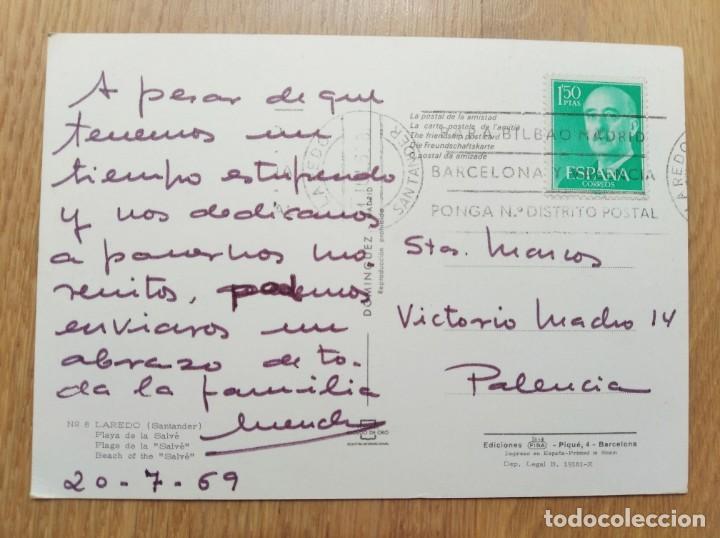 A pesar de que
tenemos un
tiempo estupendo
y nos dedicamos
a ponernos mo-
renitos, podemos
enviaros un
abrazo de to-
da la familia
Nº 8 LAREDO (Santander)
Playa de la Salvé
Plage de la "Salvé"
Beach of the "Salvé"
20-7-69
DOMINGUEZ
MADRID
Reproducción prohibida
La postal de la amistad
La carte postale de l'amitié
The friendship post card
Die Freundschaftskarte
O postal da amizade
LAREDO
SANTANDER
BILBAO MADRID
BARCELONA Y VALENCIA
PONGA N.º DISTRITO POSTAL
LAREDO
1'50
PTAS
ESPAÑA
CORREOS
Stas. Marcos
Victorio Macho 14
Palencia
Ediciones FISA - Piqué, 4 - Barcelona
Impreso en España-Printed in Spain
Dep. Legal B. 19381-X
todocoleccion
todocoleccion.net